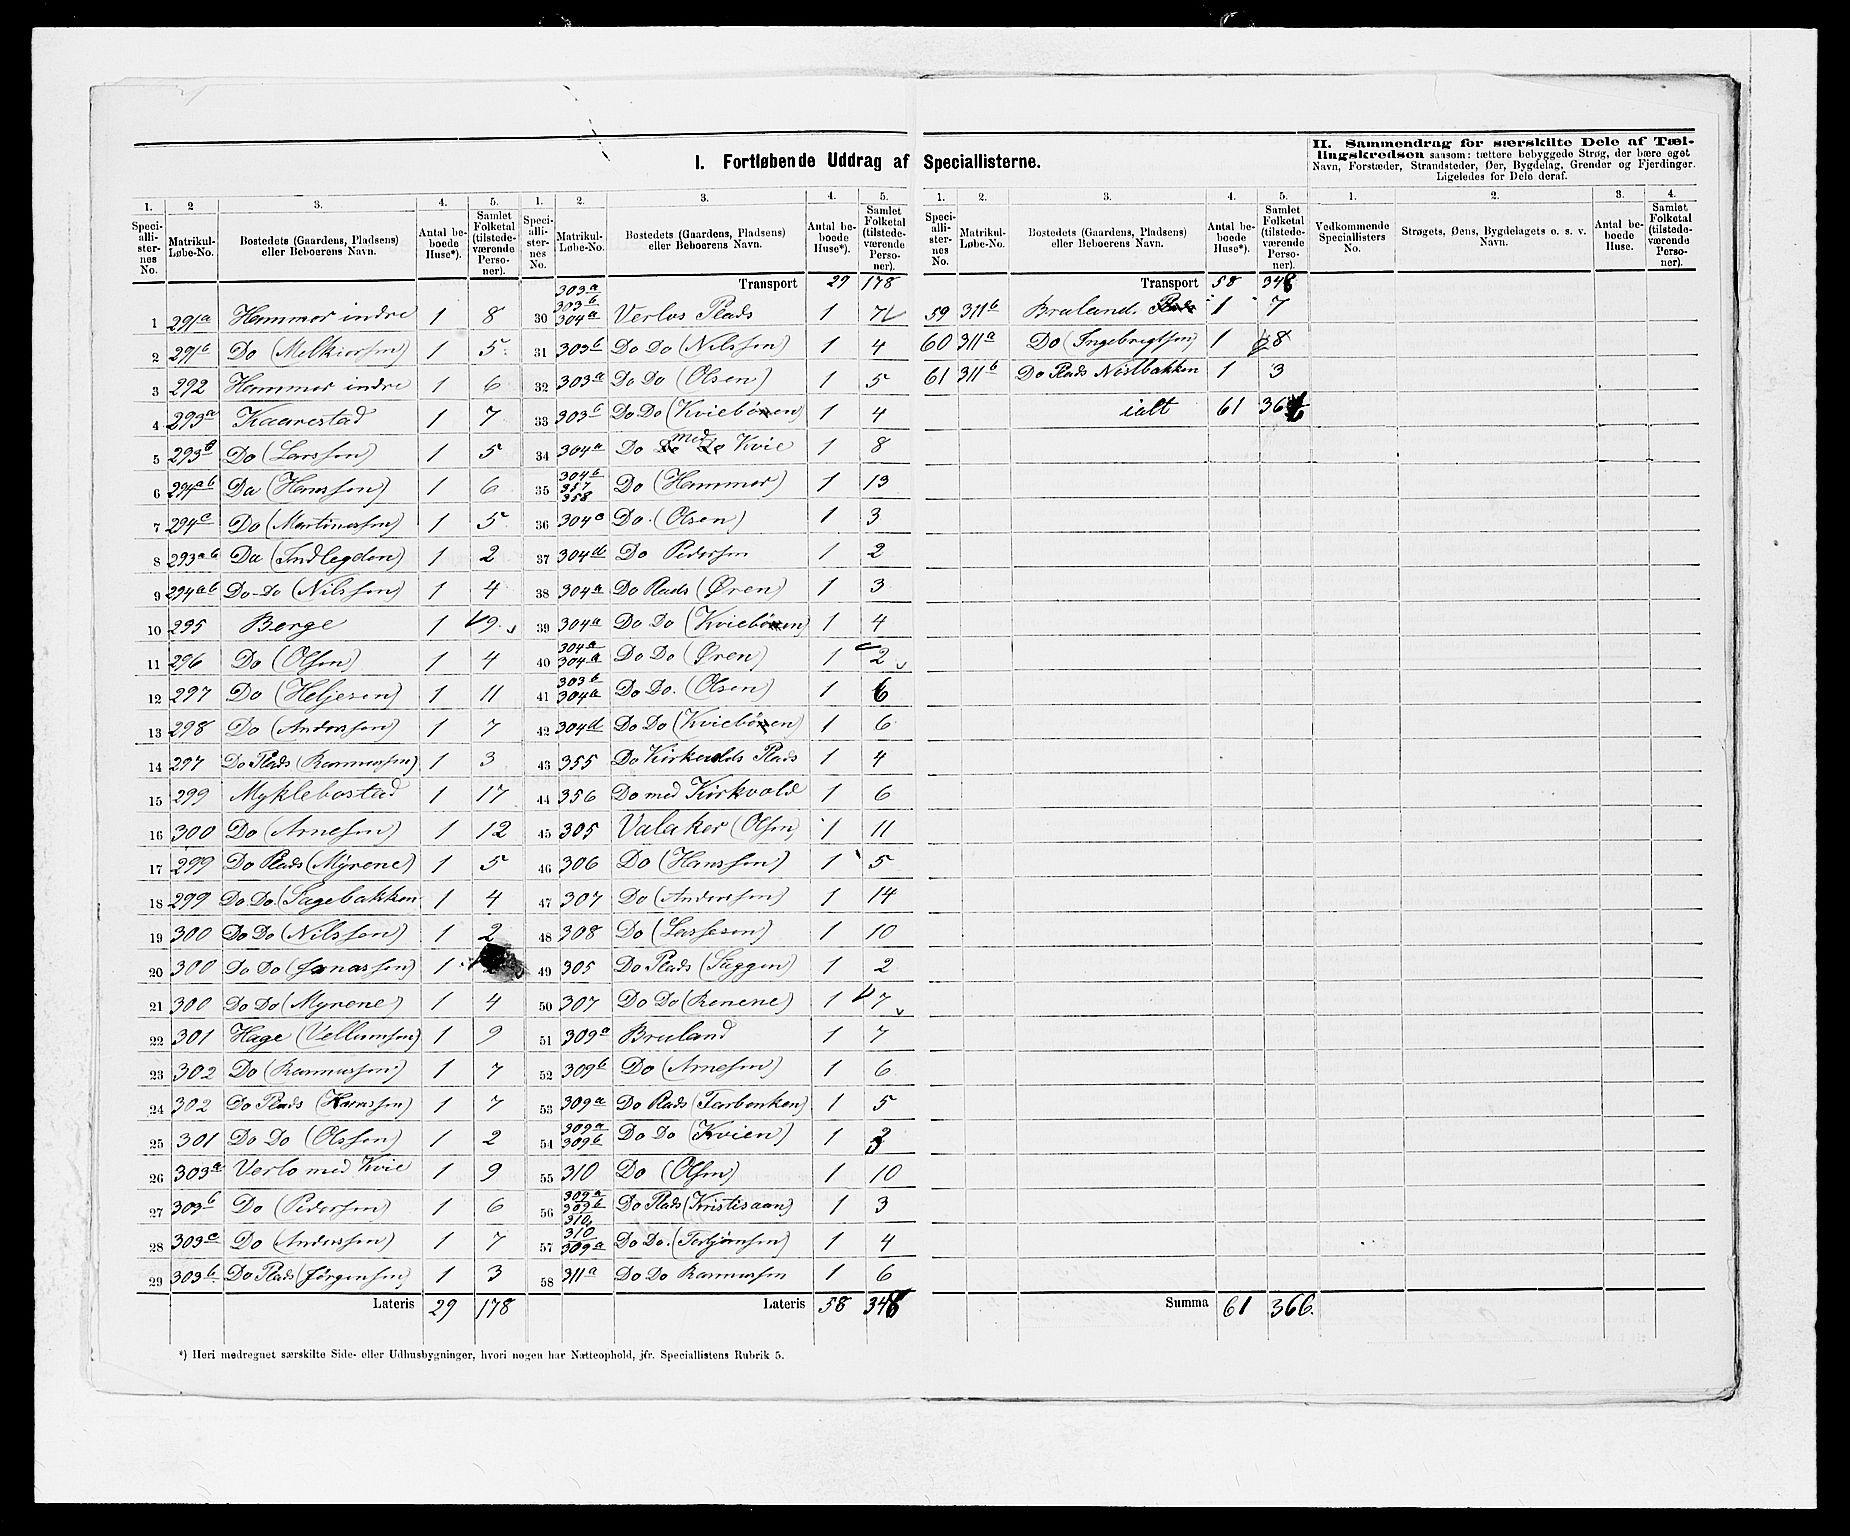 I. Fortløbende Uddrag af Speciallisterne.
II. Sammendrag for særskilte Dele af Tæl-
lingskredsen saasom: tættere bebyggede Strøg, der bære eget
Navn, Forstæder, Strandsteder, Øer, Bygdelag, Grender og Fjerdinger.
Ligeledes for Dele deraf.
1. 2 3. 4. 5. 1. 2. 3. 4. 5.
Speciallisternes No. Matrikul-Løbe-No. Bostedets (Gaardens, Pladsens) eller Beboerens Navn. Antal beboede Huse*). Samlet Folketal (tilstedeværende Personer). Speciallisternes No. Matrikul-Løbe-No. Bostedets (Gaardens, Pladsens) eller Beboerens Navn. Antal beboede Huse*). Samlet Folketal (tilstedeværende Personer).
1 291a Hammer indre 1 8
2 291b Do (Melkiorsen) 1 5
3 292 Hammer indre 1 6
4 293a Kaarestad 1 7
5 293b Do (Larssen) 1 5
6 294ab Do (Hanssen) 1 6
7 294c Do (Martinussen) 1 5
8 293ab Do (Indlegden) 1 2
9 294ab Do Do (Nilssen) 1 4
10 295 Berge 1 9
11 296 Do (Olsen) 1 4
12 297 Do (Heljesen) 1 11
13 298 Do (Anderssen) 1 7
14 297 Do Plads (Rasmussen) 1 3
15 299 Myklebostad 1 17
16 300 Do (Arnesen) 1 12
17 299 Do Plads (Myrene) 1 5
18 299 Do Do (Sagebakken 1 4
19 300 Do Do (Nilssen) 1 2
20 300 Do Do (Jonassen) 1
21 300 Do Do (Myrene) 1 4
22 301 Hage (Vellumsen) 1 9
23 302 Do (Rasmussen) 1 7
24 302 Do Plads (Hanssen) 1 7
25 301 Do Do (Olssen) 1 2
26 303a Verlo med Kvie 1 9
27 303b Do (Pedersen) 1 6
28 303c Do (Anderssen) 1 7
29 303b Do Plads (Jørgensen) 1 3
Lateris 29 178
Transport 29 178
30 303a 303b 304a Verlos Plads 1 7
31 303b Do Do (Nilssen) 1 4
32 303a Do Do (Olsen) 1 5
33 303b Do Do (Kviebøen) 1 4
34 304a Do med Kvie 1 8
35 304b 357 358 Do (Hammer) 1 13
36 304c Do (Olsen) 1 3
37 304d Do Pedersen 1 2
38 304a Do Plads (Øren) 1 3
39 304a Do Do (Kviebøen) 1 4
40 304a 304a Do Do (Øren) 1 2
41 303b 304a Do Do. (Olsen) 1 6
42 304d Do Do (Kviebøen) 1 6
43 355 Do Kirkvolds Plads 1 4
44 356 Do med Kirkvold 1 6
45 305 Valaker (Olsen) 1 11
46 306 Do (Hanssen) 1 5
47 307 Do (Anderssen) 1 14
48 308 Do (Larsesen) 1 10
49 305 Do Plads (Skggen) 1 2
50 307 Do Do (Renene) 1 7
51 309a Bruland 1 7
52 309b Do (Arnesen) 1 6
53 309a Do Plads (Tarbenken) 1 5
54 309a 309b Do Do (Kvien) 1 3
55 310 Do (Olsen) 1 10
56 309a 309b 310 Do Plads (Kristisaan) 1 3
57 310 309a Do Do. (Torbjørnsen) 1 4
58 311a Do Do Rasmussen 1 6
Lateris 58 348
1. 2. 3. 4. 5. 1. 2. 3. 4.
Speciallisternes No. Matrikul-Løbe-No. Bostedets (Gaardens, Pladsens) eller Beboerens Navn. Antal beboede Huse*). Samlet Folketal (tilstedeværende Personer). Vedkommende Speciallisters No. Strøgets, Øens, Bygdelagets o. s. v. Navn. Antal beboede Huse. Samlet Folketal (tilstedeværende Personer).
Transport 58 348
59 311b Bruland. Plads 1 7
60 311a Do (Ingebrigtsen) 1 8
61 311b Do Plads Nöstbakken 1 3
ialt 61 366
Summa 61 366.
*) Heri medregnet særskilte Side- eller Udhusbygninger, hvori nogen har Natteophold, jfr. Speciallistens Rubrik 5.